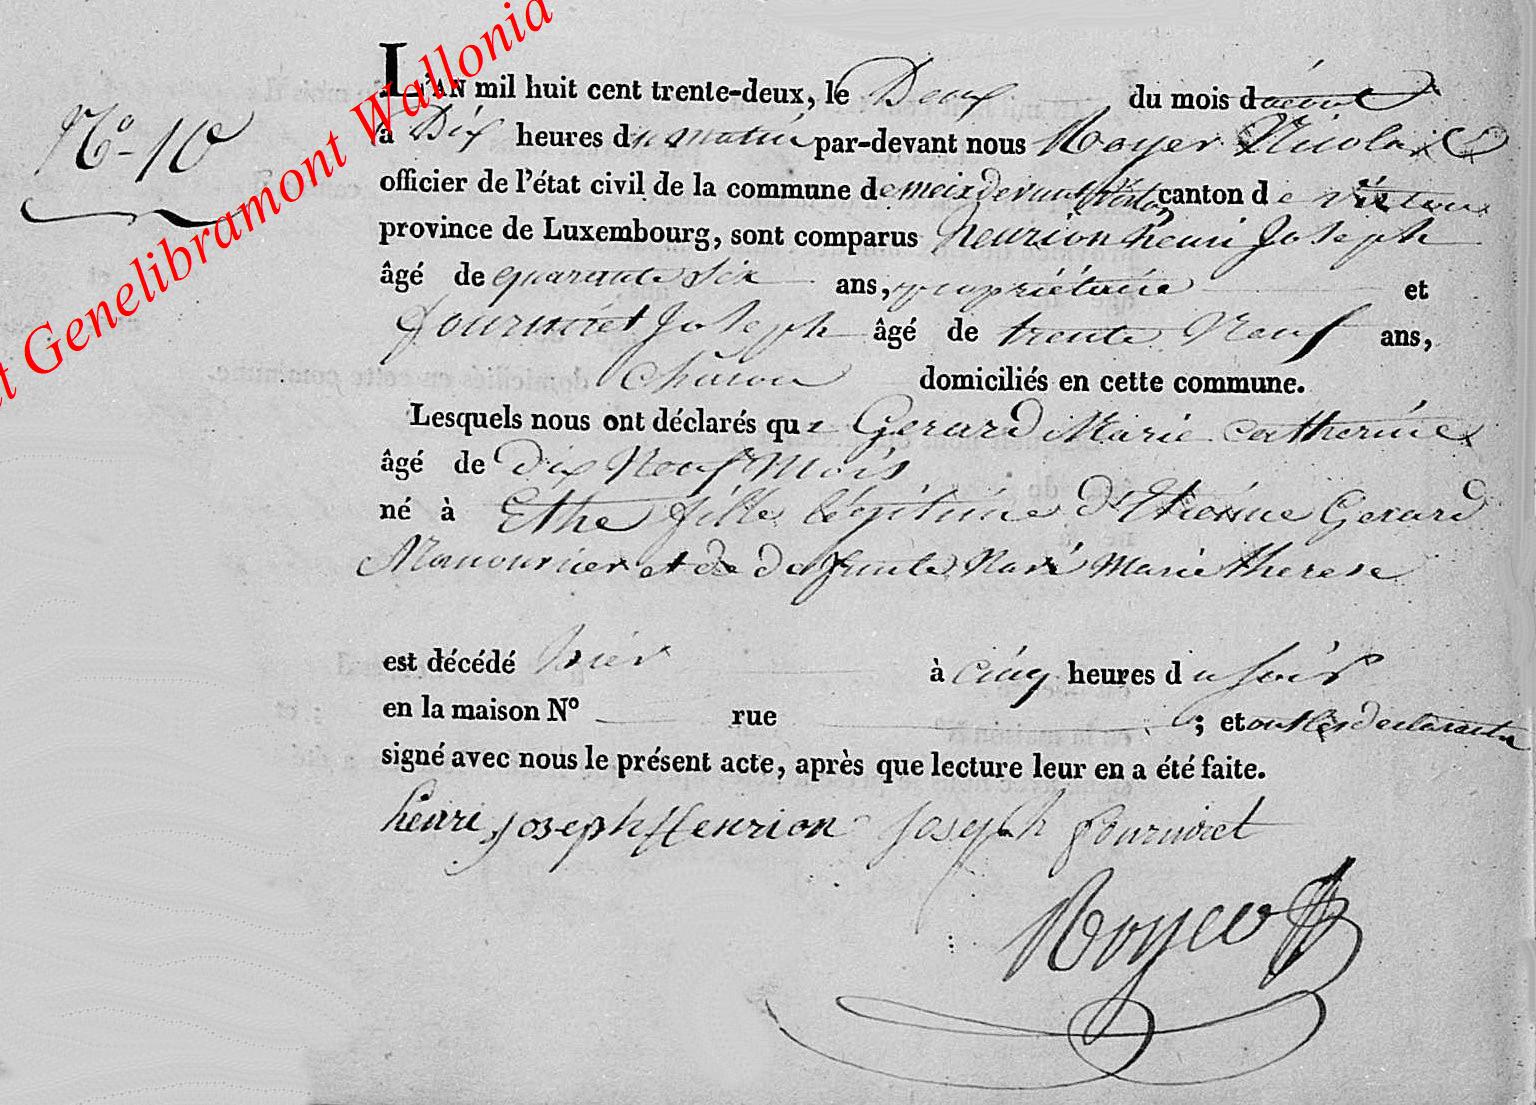 t Genelibramont Wallonia
N° 10
L'AN mil huit cent trente-deux, le Deux du mois d'aout
à Dix heures du matin par-devant nous Royer Nicolas
officier de l'état civil de la commune de meix devant virton canton de virton
province de Luxembourg, sont comparus henrion henri Joseph
âgé de quarante six ans, propriétaire et
fourniret Joseph âgé de trente Neuf ans,
Charon domiciliés en cette commune.
Lesquels nous ont déclarés que Gerard Marie catherine
âgé de dix Neuf Mois
né à Ethe fille légitime d'Etienne Gerard
Manouvrier et de defunte Naré Marie therese
est décédé hier à cinq heures du soir
en la maison N° rue ; et ont les declarants
signé avec nous le présent acte, après que lecture leur en a été faite.
henri joseph henrion Joseph fourniret
Royer